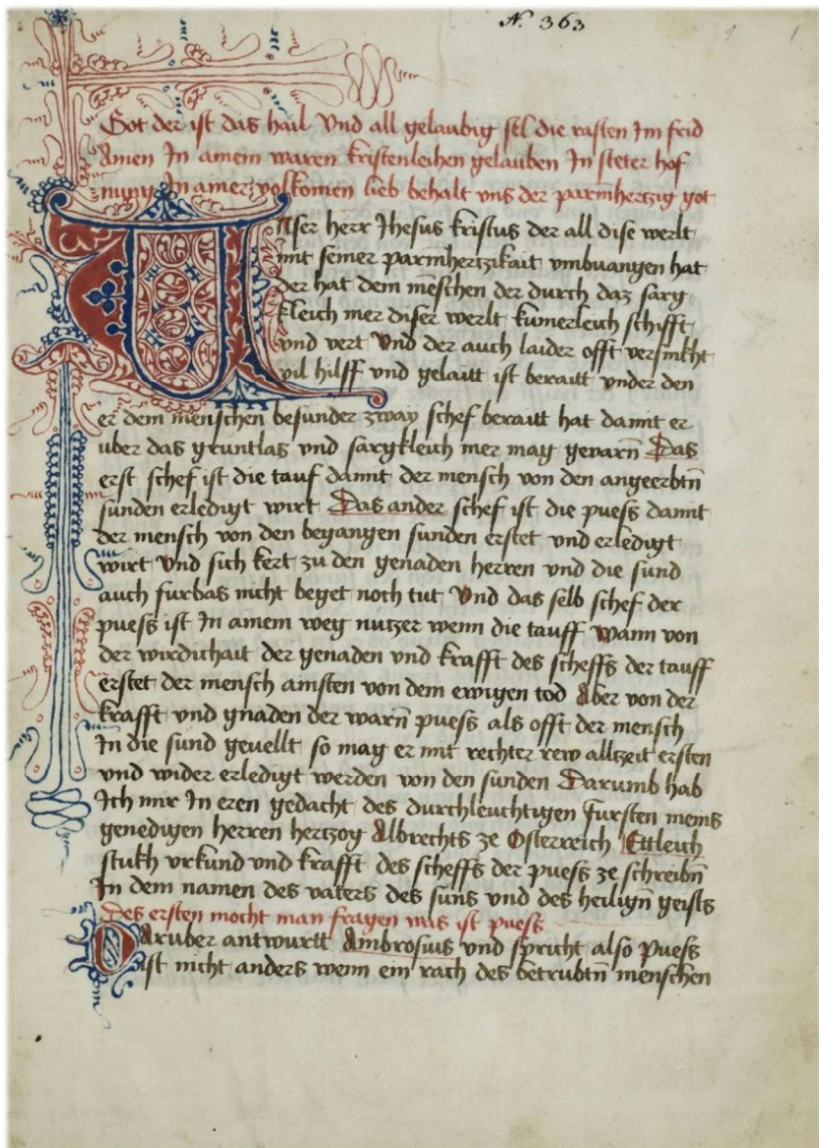 N. 363
1 1
Got der ist das hail Vnd all gelaubig sel die rasten Im frid
Amen In ainem waren kristenleihen gelauben In steter hof
nung In ainer volkomen lieb behalt vns der parmhertzig got
Unser herr Jhesus kristus der all dise werlt
mit seiner parmhertzikait vmbuangen hat
der hat dem menschen der durch daz sarg
kleich mer diser werlt kumerleich schifft
vnd vert Vnd der auch laider offt versinkht
vil hilff vnd gelaitt ist beraitt vnder den
er dem menschen besunder zway schef beraitt hat damit er
uber das gruntlas vnd sargkleich mer mag gevarn̄ Das
erst schef ist die tauf damit der mensch von den angeerbtn̄
sunden erledigt wirt Das ander schef ist die puess damit
der mensch von den begangen sunden erstet vnd erledigt
wirt Vnd sich kert zu den genaden herren vnd die sund
auch furbas nicht beget noch tut Vnd das selb schef der
puess ist In ainem weg nutzer wenn die tauff Wann von
der wirdichait der genaden vnd krafft des scheffs der tauff
erstet der mensch ainsten von dem ewigen tod Aber von der
krafft vnd gnaden der warn̄ puess als offt der mensch
In die sund geuellt so mag er mit rechter rew allczeit ersten
vnd wider erledigt werden von den sunden Darumb hab
Ich mir In eren gedacht des durchleuchtigen fursten meins
genedigen herren hertzog Albrechts ze Osterreich Ettleich
stukh vrkund vnd krafft des scheffs der puess ze schreibn̄
In dem namen des vaters des suns vnd des heilign̄ geists
Des ersten mocht man fragen was ist puess
Daruber antwurtt Ambrosius vnd spricht also Puess
ist nicht anders wenn ein rach des betrubtn̄ menschen